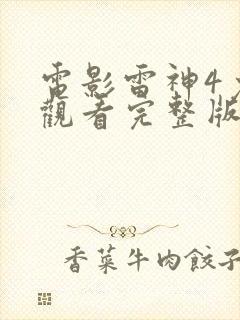 電影雷神4
觀看完整版
香菜牛肉餃子